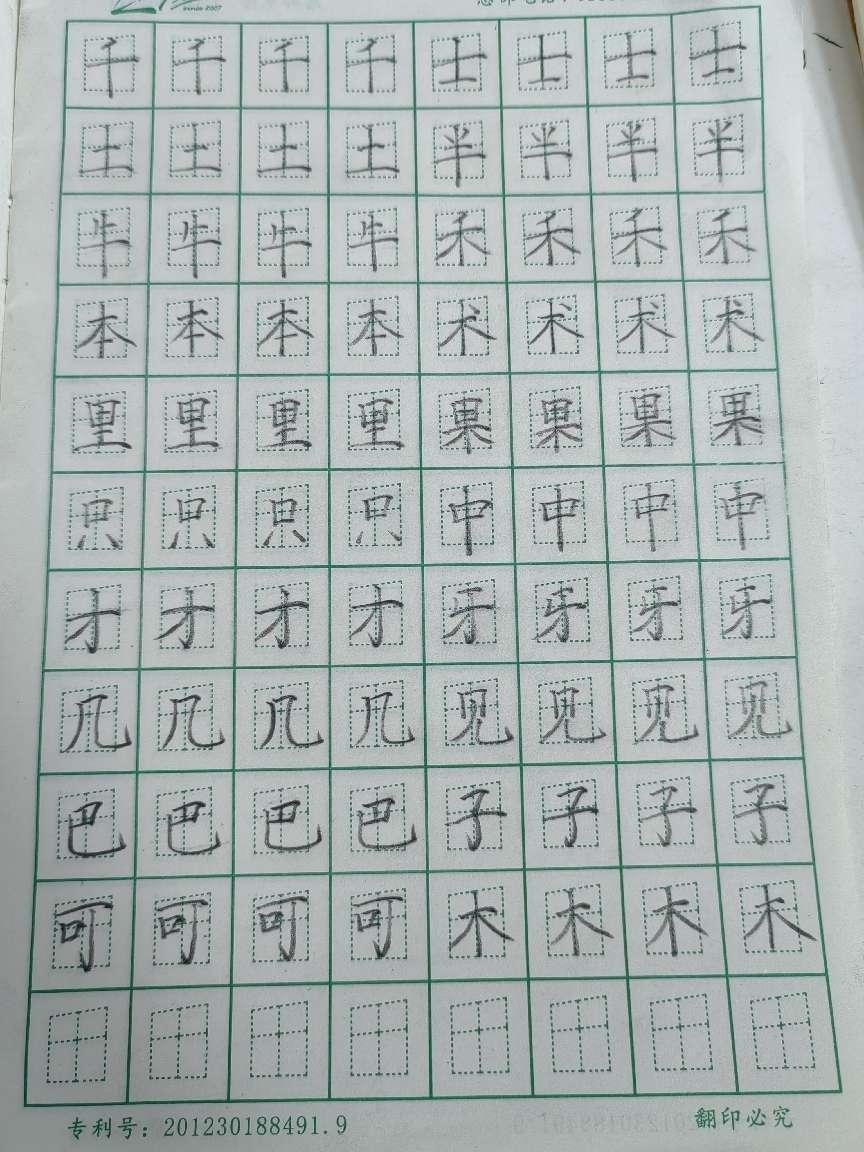 since 2007
千千千千士士士士
土土土土半半半半
牛牛牛牛禾禾禾禾
本本本本术术术术
里里里里果果果果
只只只只中中中中
才才才才牙牙牙牙
几几几几见见见见
巴巴巴巴子子子子
可可可可木木木木
专利号：201230188491.9
翻印必究